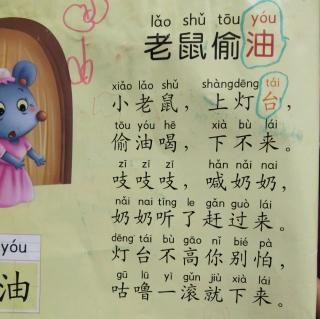 lǎo shǔ tōu yóu
老鼠偷油
xiǎo lǎo shǔ shàngdēng tái
小老鼠，上灯台，
tōu yóu hē xià bù lái
偷油喝，下不来。
zī zī zī hǎn nǎi nai
吱吱吱，喊奶奶，
nǎi nai tīng le gǎn guò lái
奶奶听了赶过来。
dēng tái bù gāo nǐ bié pà
灯台不高你别怕，
gū lū yì gǔn jiù xià lái
咕噜一滚就下来。
yóu
油